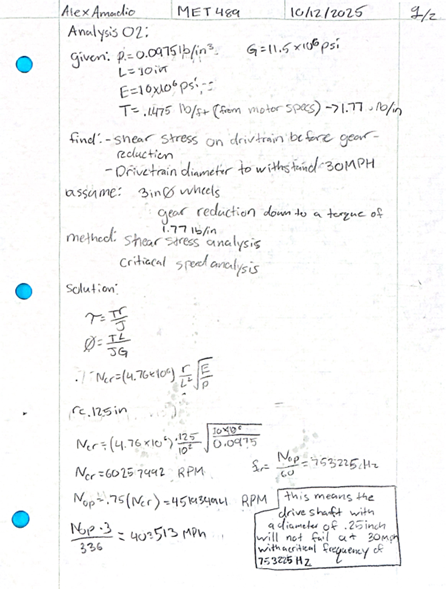 Alex Amadio MET 489 10/12/2025 1/2
Analysis 02:
given: ρ=0.0975 lb/in³ G=11.5×10⁶ psi
L=10in
E=10×10⁶ psi
T=.1475 lb/ft (from motor specs) → 1.77 lb/in
find: - shear stress on drivtrain before gear-
reduction
- Drivetrain diameter to withstand 30MPH
assume: 3inØ wheels
gear reduction down to a torque of
1.77 lb/in
method: shear stress analysis
critiacal speed analysis
solution:
τ=Tr/J
Ø=TL/JG
Ncr=(4.76×10⁶) r/L² √E/ρ
r=.125in
Ncr=(4.76×10⁶) .125/10² √10×10⁶/0.0975
Ncr=60257.992 RPM
fn= Nop/60 =753.225 Hz
Nop=.75(Ncr)=45193.494 RPM
Nop·3/336 =403.513 MPH
this means the
drive shaft with
a diameter of .25inch
will not fail at 30mph
with a critical frequency of
753.225 Hz